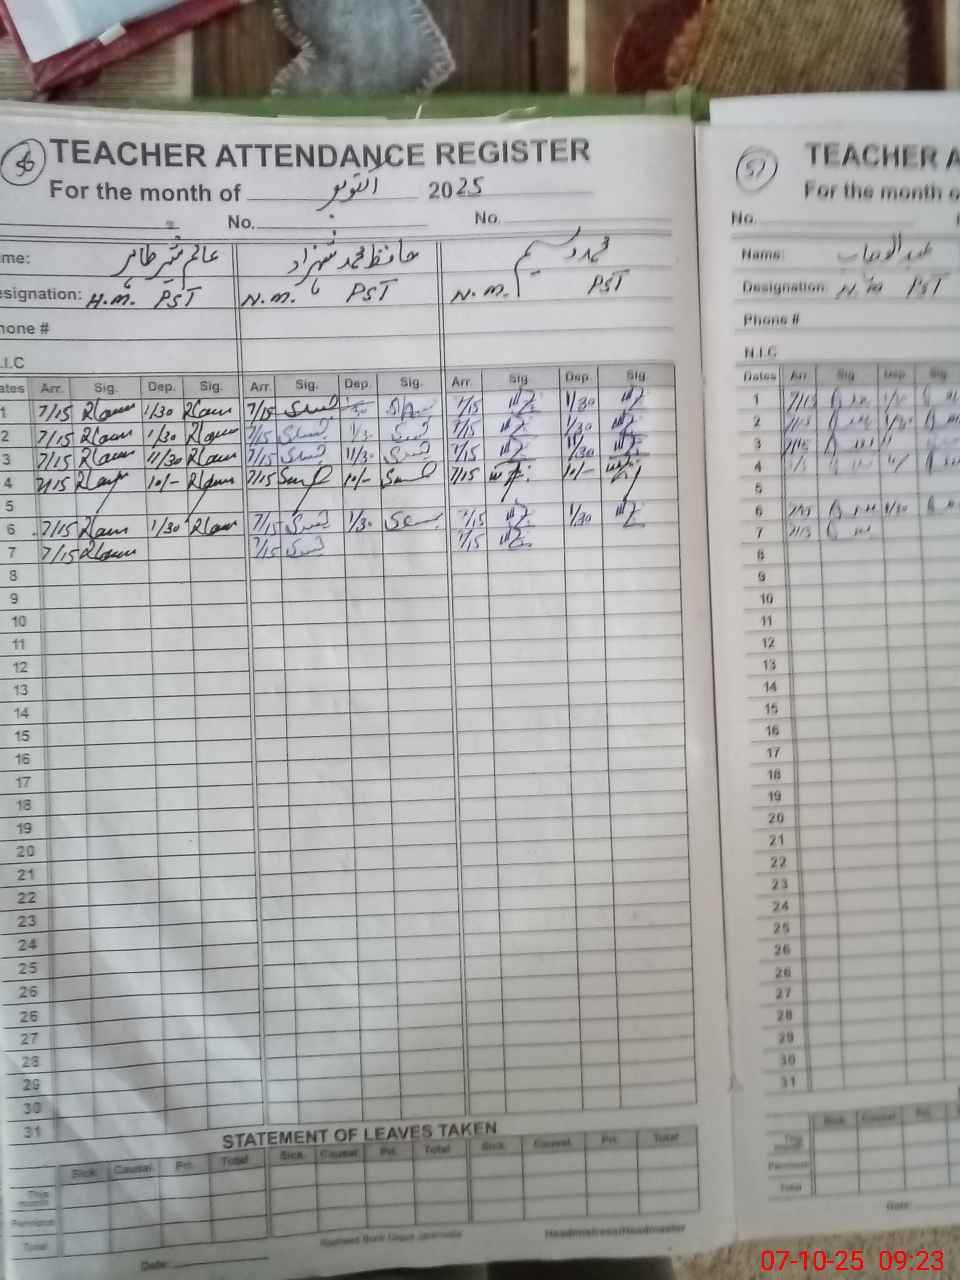 56
TEACHER ATTENDANCE REGISTER
For the month of اکتوبر 2025
No. No.
me: عالم شیر طاہر حافظ محمد شہزاد محمد وسیم
esignation: H.M. PST N.M. PST N.M. PST
hone #
.I.C
ates Arr. Sig. Dep. Sig. Arr. Sig. Dep. Sig. Arr. Sig. Dep. Sig.
1 7/15 1/30 7/15 7/15 1/30
2 7/15 1/30 7/15 1/3 7/15 1/30
3 7/15 11/30 7/15 11/30 7/15 11/30
4 7/15 10/- 7/15 10/- 7/15 10/-
5
6 7/15 1/30 7/15 1/30 7/15 1/30
7 7/15 7/15 7/15
8
9
10
11
12
13
14
15
16
17
18
19
20
21
22
23
24
25
26
26
27
28
29
30
31
STATEMENT OF LEAVES TAKEN
Sick. Causal. Pri. Total Sick. Causal. Pri. Total Sick. Causal. Pri. Total
This month
Previous
Total
Date: Headmistress/Headmaster
57
TEACHER A
For the month o
No.
Name:
Designation: PST
Phone #
N.I.C
Dates Arr. Sig. Dep. Sig.
1 7/15
2 7/15
3 7/15
4
5
6 7/15 1/30
7 7/15
8
9
10
11
12
13
14
15
16
17
18
19
20
21
22
23
24
25
26
26
27
28
29
30
31
Sick. Causal. Pri.
This month
Previous
Total
Date:
07-10-25 09:23